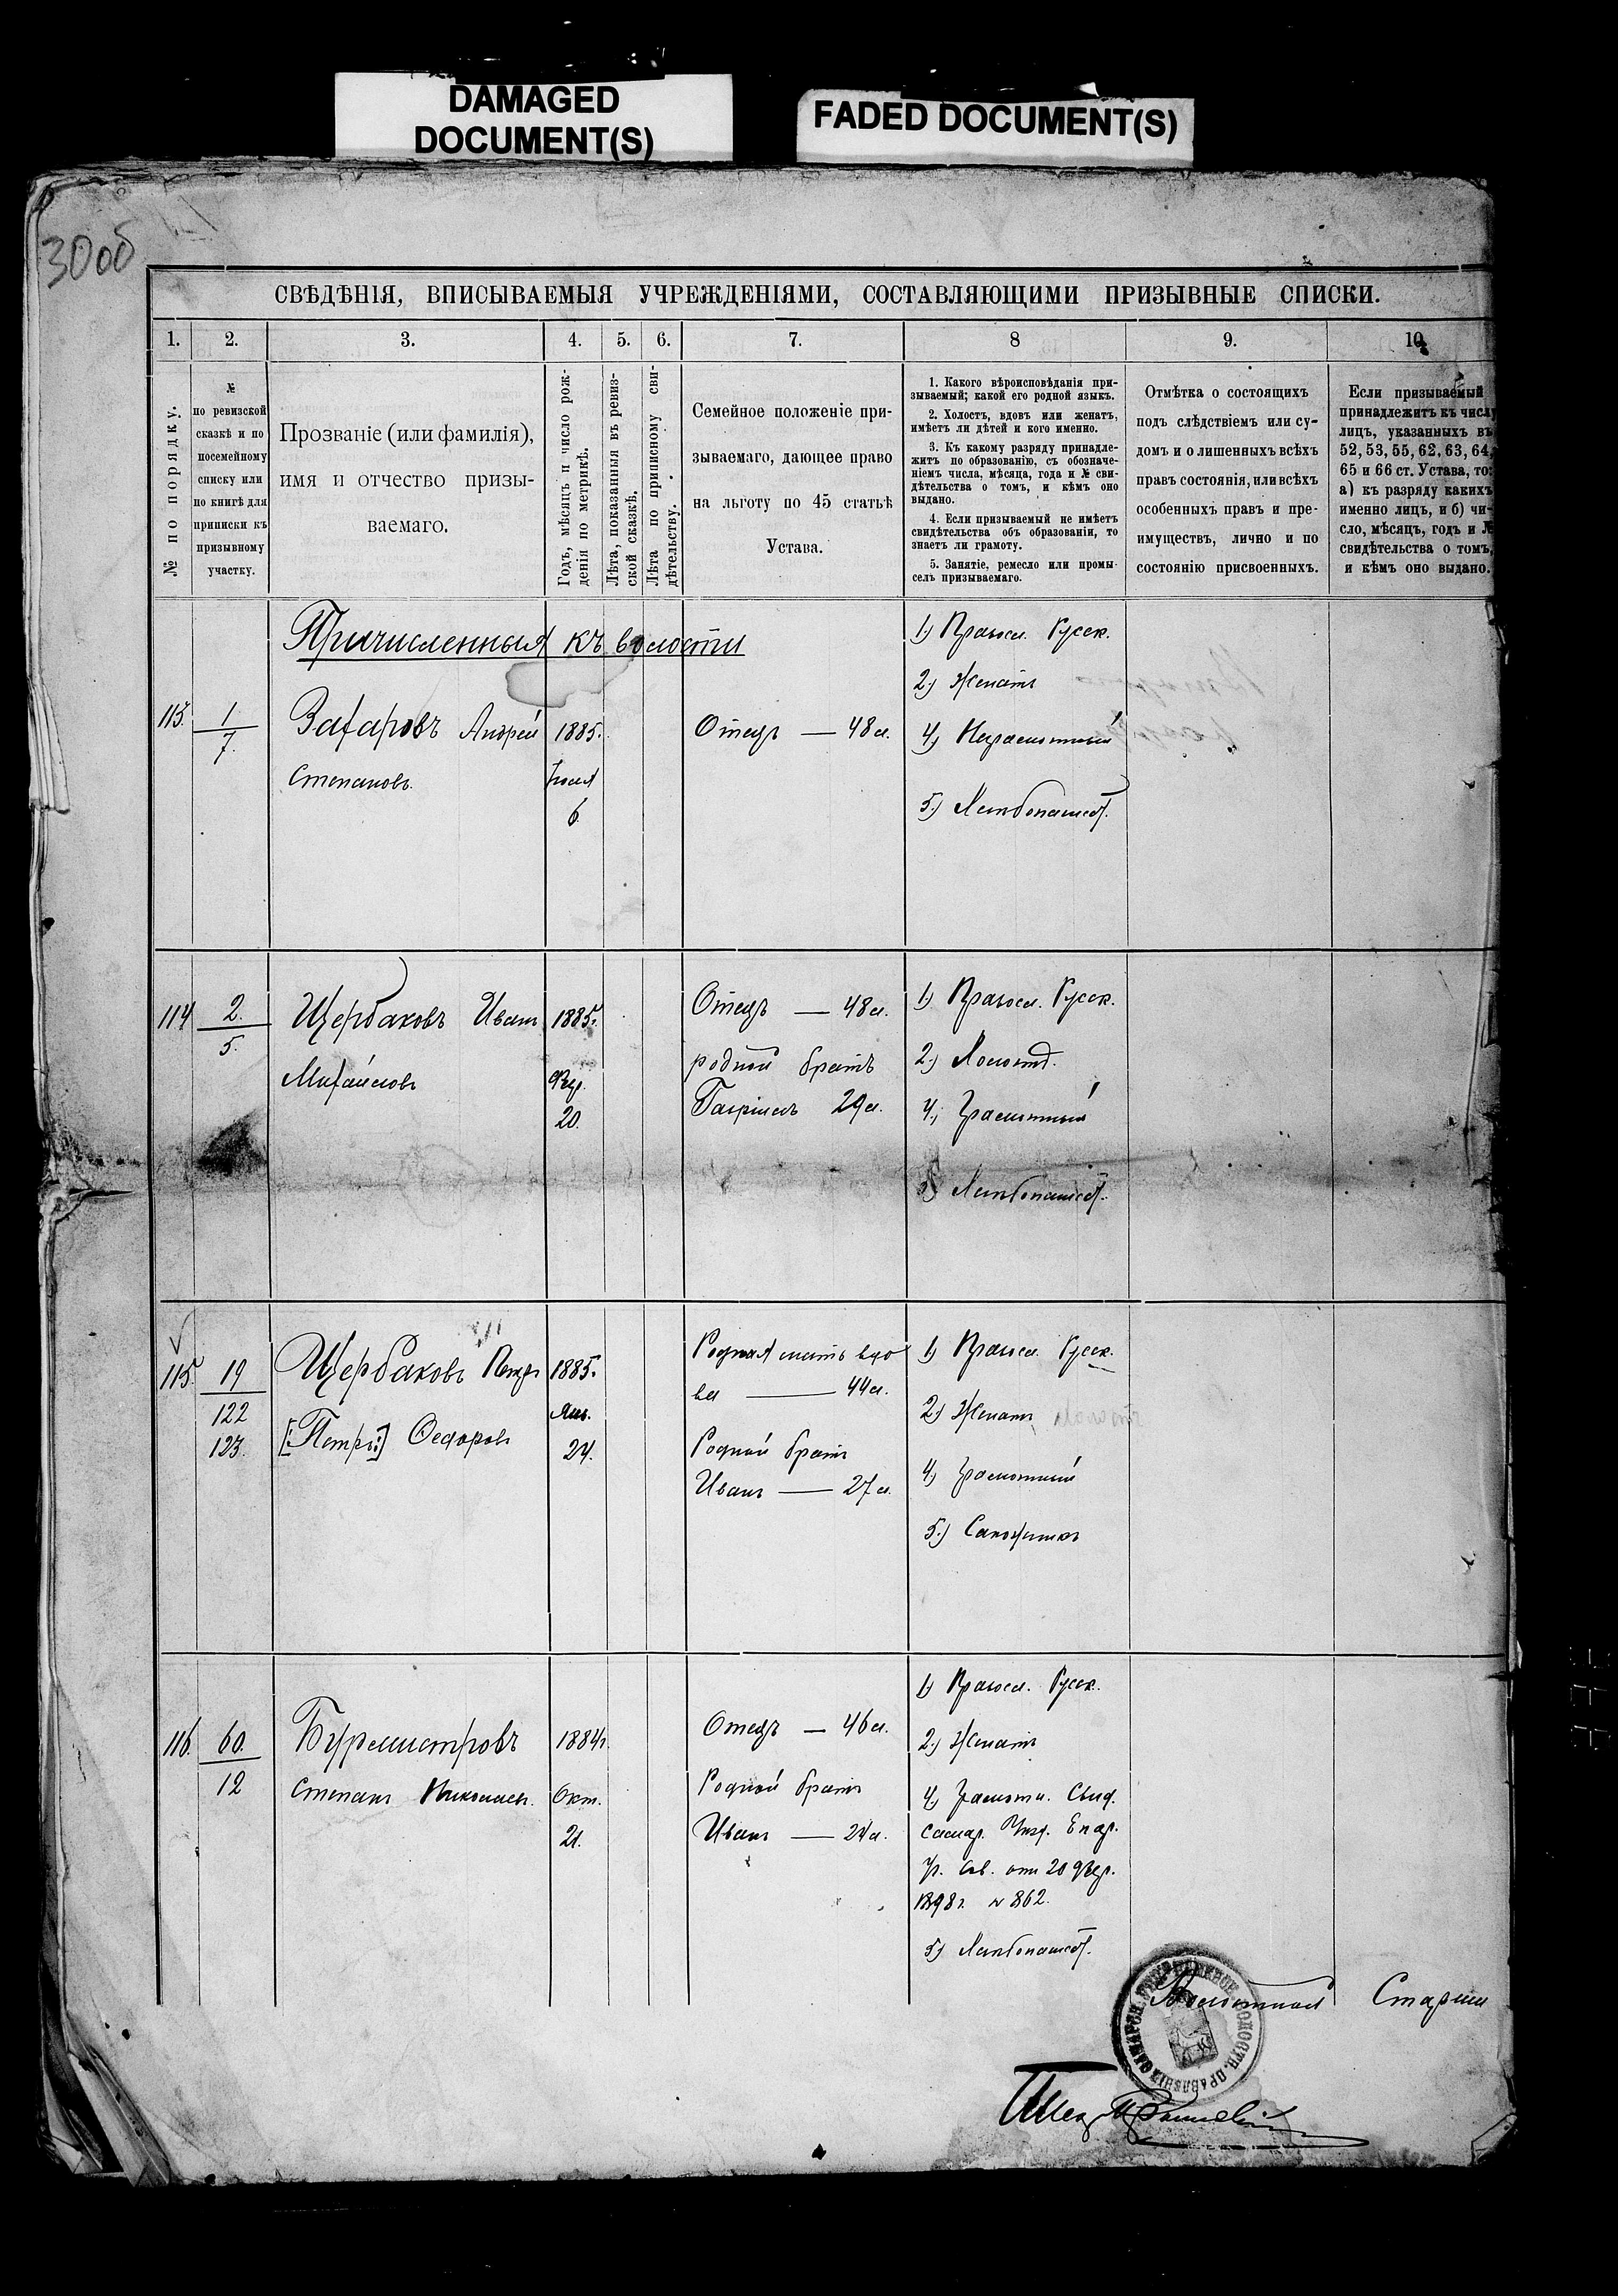 DAMAGED
DOCUMENT(S)
FADED DOCUMENT(S)
30об
СВѢДѢНІЯ, ВПИСЫВАЕМЫЯ УЧРЕЖДЕНІЯМИ, СОСТАВЛЯЮЩИМИ ПРИЗЫВНЫЕ СПИСКИ.
1. 2. 3. 4. 5. 6. 7. 8 9. 10
№ по порядку.
№
по ревизской
сказкѣ и по
посемейному
списку или
по книгѣ для
приписки къ
призывному
участку.
Прозваніе (или фамилія),
имя и отчество призы-
ваемаго.
Годъ, мѣсяцъ и число рож-
денія по метрикѣ.
Лѣта, показанныя въ ревиз-
ской сказкѣ.
Лѣта по приписному сви-
дѣтельству.
Семейное положеніе при-
зываемаго, дающее право
на льготу по 45 статьѣ
Устава.
1. Какого вѣроисповѣданія при-
зываемый; какой его родной языкъ.
2. Холостъ, вдовъ или женатъ,
имѣетъ ли дѣтей и кого именно.
3. Къ какому разряду принадле-
житъ по образованію, съ обозначе-
ніемъ числа, мѣсяца, года и № сви-
дѣтельства о томъ, и кѣмъ оно
выдано.
4. Если призываемый не имѣетъ
свидѣтельства объ образованіи, то
знаетъ ли грамоту.
5. Занятіе, ремесло или промы-
селъ призываемаго.
Отмѣтка о состоящихъ
подъ слѣдствіемъ или су-
домъ и о лишенныхъ всѣхъ
правъ состоянія, или всѣхъ
особенныхъ правъ и пре-
имуществъ, лично и по
состоянію присвоенныхъ.
Если призываемый
принадлежитъ къ числу
лицъ, указанныхъ въ
52, 53, 55, 62, 63, 64,
65 и 66 ст. Устава, то:
а) къ разряду какихъ
именно лицъ, и б) чи-
сло, мѣсяцъ, годъ и №
свидѣтельства о томъ,
и кѣмъ оно выдано.
Причисленныя къ волости
113
1
7.
Захаровъ Андрей
Степановъ.
1885.
Іюля
6.
Отецъ — 48 л.
1) Правосл. Русск.
2) Женатъ
4) Неграмотный
5) Хлѣбопашест.
114
2.
5.
Щербаковъ Иванъ
Михайловъ
1885.
Фев.
20.
Отецъ — 48 л.
родной братъ
Гаврилъ 29 л.
1) Правосл. Русск.
2) Холостъ.
4) Грамотный
5) Хлѣбопашест.
115.
19
122
123.
Щербаковъ Петръ
[:Петръ:] Ѳедоровъ
1885.
Янв.
24.
Родная мать вдо
ва — 44 л.
Родной братъ
Иванъ — 27 л.
1) Правосл. Русск.
2) Женатъ
4) Грамотный
5) Сапожникъ
116.
60.
12
Бурмистровъ
Степанъ Николаев.
1884 г.
Окт.
21.
Отецъ — 46 л.
Родной братъ
Иванъ — 24 л.
1) Правосл. Русск.
2) Женатъ
4) Грамотн. Свид.
Самар. Уѣзд. Епар.
Уч. Сов. отъ 20 Февр.
1898 г. № 862.
5) Хлѣбопашест.
Волостной Старши